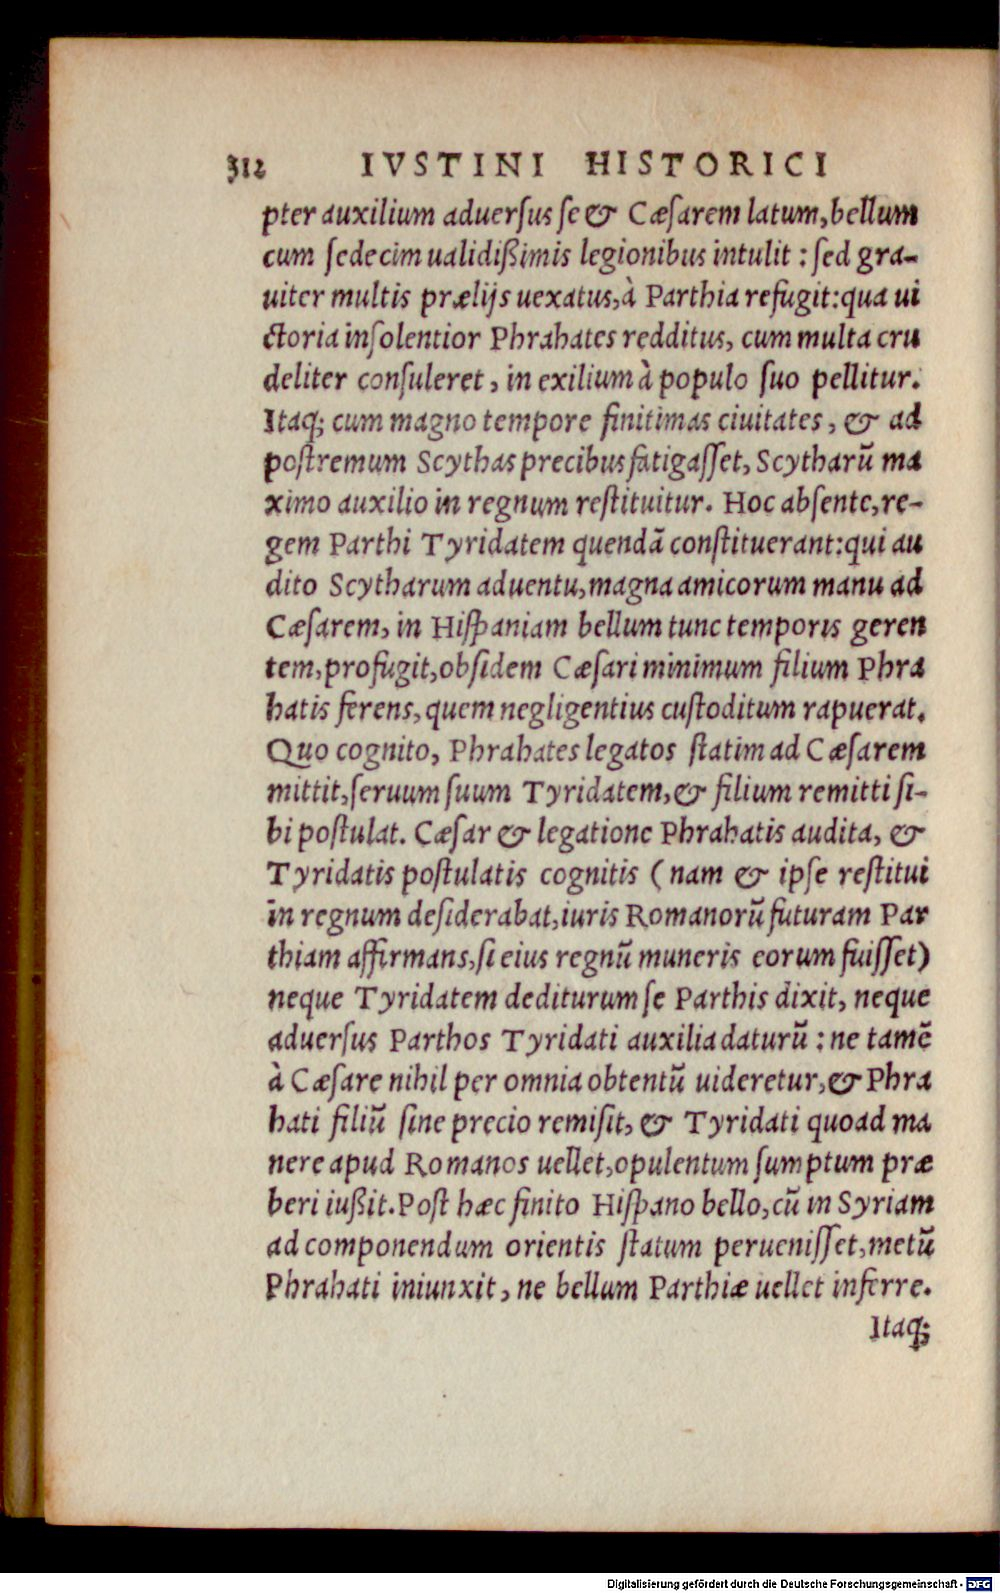 312 IVSTINI HISTORICI
pter auxilium aduersus se & Cæsarem latum, bellum
cum sedecim ualidißimis legionibus intulit : sed gra-
uiter multis prælijs uexatus, à Parthia refugit: qua ui
ctoria insolentior Phrahates redditus, cum multa cru
deliter consuleret, in exilium à populo suo pellitur.
Itaq; cum magno tempore finitimas ciuitates, & ad
postremum Scythas precibus fatigasset, Scytharũ ma
ximo auxilio in regnum restituitur. Hoc absente, re-
gem Parthi Tyridatem quendã constituerant: qui au
dito Scytharum aduentu, magna amicorum manu ad
Cæsarem, in Hispaniam bellum tunc temporis geren
tem, profugit, obsidem Cæsari minimum filium Phra
hatis ferens, quem negligentius custoditum rapuerat.
Quo cognito, Phrahates legatos statim ad Cæsarem
mittit, seruum suum Tyridatem, & filium remitti si-
bi postulat. Cæsar & legatione Phrahatis audita, &
Tyridatis postulatis cognitis ( nam & ipse restitui
in regnum desiderabat, iuris Romanorũ futuram Par
thiam affirmans, si eius regnũ muneris eorum fuisset)
neque Tyridatem dediturum se Parthis dixit, neque
aduersus Parthos Tyridati auxilia daturũ : ne tamẽ
à Cæsare nihil per omnia obtentũ uideretur, & Phra
hati filiũ sine precio remisit, & Tyridati quoad ma
nere apud Romanos uellet, opulentum sumptum præ
beri iußit. Post hæc finito Hispano bello, cũ in Syriam
ad componendum orientis statum peruenisset, metũ
Phrahati iniunxit, ne bellum Parthiæ uellet inferre.
Itaq;
Digitalisierung gefördert durch die Deutsche Forschungsgemeinschaft - DFG